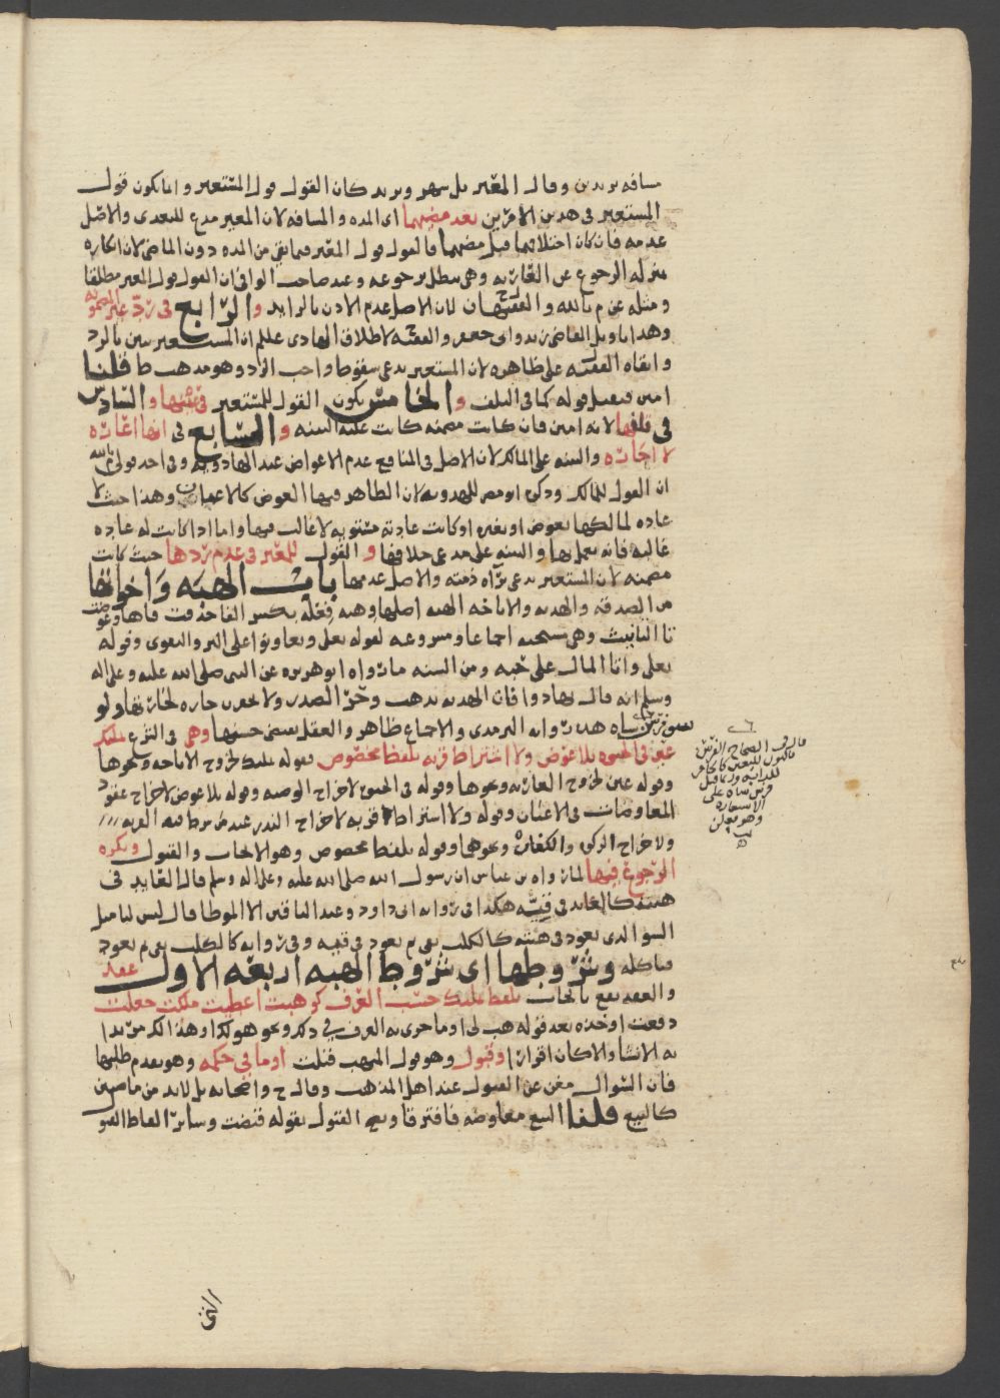 مسافه بريدين وقال المعير بل شهر وبريد كان القول قول المستعير وانما يكون قول
المستعير في هذين الامرين بعد مضيهما اى المده والمسافه لان المعير مدع للتعدى والاصل
عدمه فان كان اختلافهما قبل مضيهما فالقول قول المعير فيما بقي من المده دون الماضي لان انكاره
بمنزله الرجوع عن العاريه وهي تبطل برجوعه وعند صاحب الوافي ان القول قول المعير مطلقا
ومثله عن م بالله والفقيهان لان الاصل عدم الاذن بالزايد والرابع في رد غير المضمونه
وهذا تاويل القاضي زيد وابى جعفر والفقيه لاطلاق الهادى عليلم ان المستعير يبين بالرد
وابقاه الفقيه على ظاهره لان المستعير يدعى سقوط واجب الرد وهو مذهب ط قلنا
امين فيقبل قوله كما في التلف والخامس يكون القول للمستعير في عينها والسادس
في تلفها لانه امين فان كانت مضمنه كانت عليه البينه والسابع في انها اعاره
لا اجاره والبينه على المالك لان الاصل في المنافع عدم الاعواض عند الهادويه وفي احد قولي م بالله
ان القول للمالك وذكره ابو مضر للهدويه لان الظاهر فيها العوض كالاعيان وهذا حيث لا
عاده لمالكها بعوض او بغيره او كانت عادته مستويه لا غالب فيها واما اذا كانت له عاده
غالبه فانه يعمل بها والبينه على مدعى خلافها والقول للمعير في عدم ردها حيث كانت
مضمنه لان المستعير يدعى براه ذمته والاصل عدمها باب الهبه واخواتها
من الصدقه والهديه والاباحه الهبه اصلها وهبه فعله بكسر الفا حذفت فاها وعوضت
تا التانيث وهي مستحبه اجماعا ومشروعه لقوله تعلى وتعاونوا على البر والتقوى وقوله
تعلى واتا المال على حبه ومن السنه ما رواه ابو هريره عن النبي صلى الله عليه وعلى اله
وسلم انه قال تهادوا فان الهديه تذهب وحر الصدر ولا تحقرن جاره لجارتها ولو
بشق فرسن شاه هذه روايه الترمذى والاجماع ظاهر والعقل يقضي حسنها وهي في الشرع تمليك
عين في الحيوه بلا عوض ولا اشتراط قربه بلفظ مخصوص فقوله تمليك لخروج الاباحه ونحوها
وقوله عين لخروج العاريه ونحوها وقوله في الحيوه لاخراج الوصيه وقوله بلا عوض لاخراج عقود
المعاوضات في الاعيان وقوله ولا اشتراط قربه لاخراج النذر عند من شرط فيه القربه
ولاخراج الزكوه والكفاره ونحوهما وقوله بلفظ مخصوص وهو الايجاب والقبول ويكره
الرجوع فيها لما رواه بن عباس ان رسول الله صلى الله عليه وعلى اله وسلم قال العايد في
هبته كالعايد في قيئه هكذا في روايه ابى داود وعند الباقين الا الموطا قال ليس لنا مثل
السو الذى يعود في هبته كالكلب يقي ثم يعود في قيئه وفي روايه كالكلب يقي ثم يعود
فياكله وشروطها اى شروط الهبه اربعه الاول عقد
والعقد يقع بايجاب بلفظ تمليك حسب العرف كوهبت اعطيت ملكت جعلت
دفعت او خذه بعد قوله هب لى او ما جرى به العرف في ذلك ونحو هو لك او هذا لك مريدا
به الانشا والا كان اقرارا او قبول وهو قول المتهب قبلت او ما في حكمه وهو تقدم طلبها
فان السوال مغن عن القبول عند اهل المذهب وقال ح واصحابه بل لا بد من ماضيين
كالبيع قلنا البيع معاوضه فافترقا ويصح القبول بقوله قبضت وساير الفاظ القبو
قال في الصحاح الفرسن
بالنون للبعير كالحافر
للدابه وربما قيل
فرسن شاه على
الاستعاره
وهو فعلن